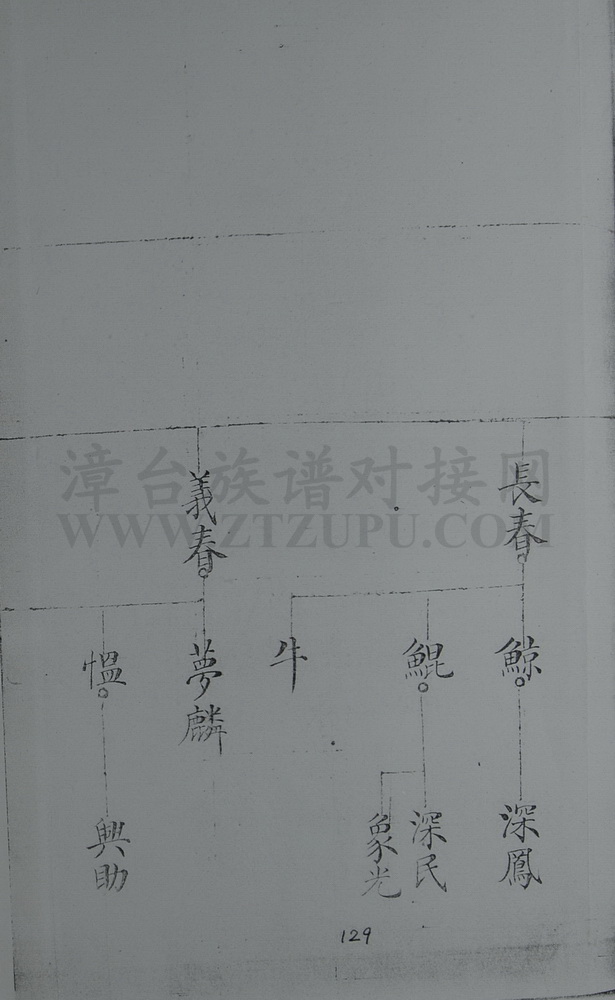 長春
義春
鯨
鯤
牛
夢麟
愠
深鳳
深民
象光
興助
129
漳台族谱对接网
WWW.ZTZUPU.COM